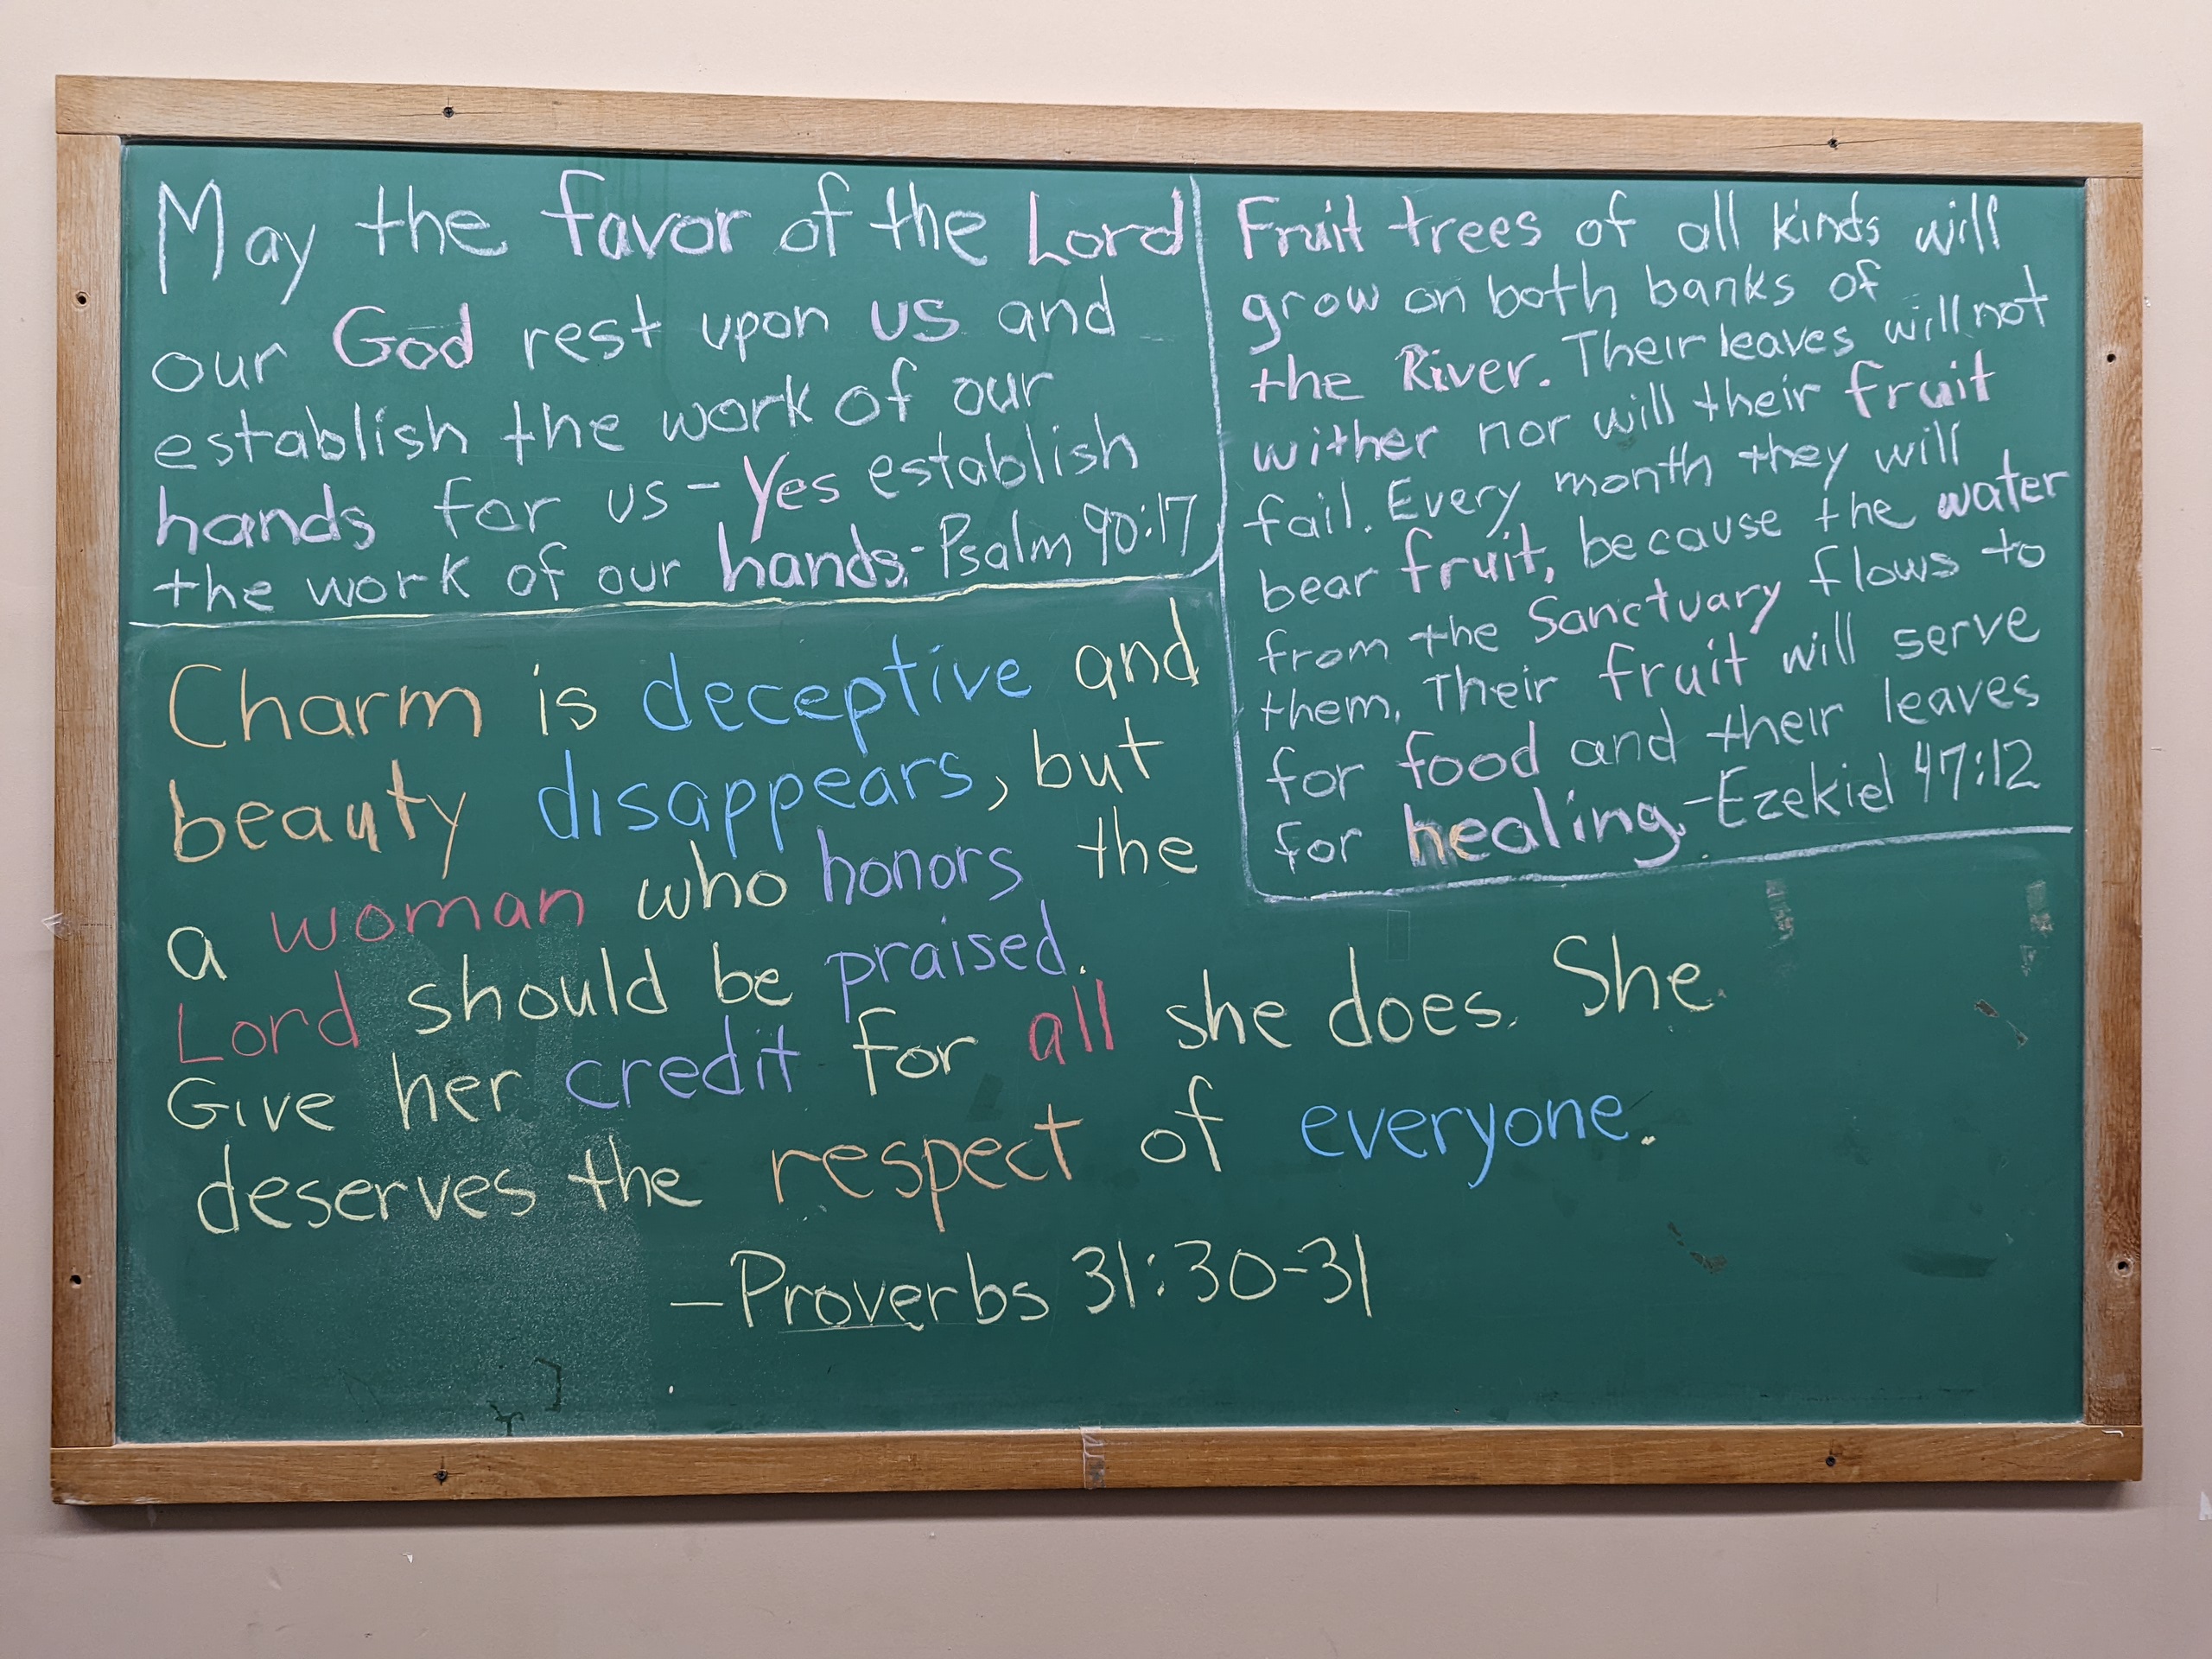 May the favor of the Lord
our God rest upon us and
establish the work of our
hands for us - Yes establish
the work of our hands. - Psalm 90:17
Fruit trees of all kinds will
grow on both banks of
the River. Their leaves will not
wither nor will their fruit
fail. Every month they will
bear fruit, because the water
from the Sanctuary flows to
them. Their fruit will serve
for food and their leaves
for healing. - Ezekiel 47:12
Charm is deceptive and
beauty disappears, but
a woman who honors the
Lord should be praised.
Give her credit for all she does. She
deserves the respect of everyone.
- Proverbs 31:30-31